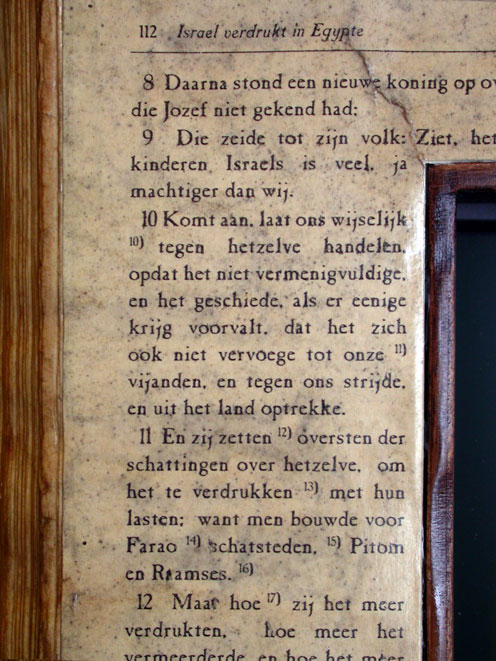 112 Israel verdrukt in Egypte
8 Daarna stond een nieuwe koning op
die Jozef niet gekend had;
9 Die zeide tot zijn volk: Ziet, het
kinderen Israels is veel, ja
machtiger dan wij.
10 Komt aan, laat ons wijselijk
10) tegen hetzelve handelen,
opdat het niet vermenigvuldige,
en het geschiede, als er eenige
krijg voorvalt, dat het zich
ook niet vervoege tot onze 11)
vijanden, en tegen ons strijde,
en uit het land optrekke.
11 En zij zetten 12) oversten der
schattingen over hetzelve, om
het te verdrukken 13) met hun
lasten; want men bouwde voor
Farao 14) schatsteden, 15) Pitom
en Raamses. 16)
12 Maar hoe 17) zij het meer
verdrukten, hoe meer het
vermeerderde, en hoe het meer